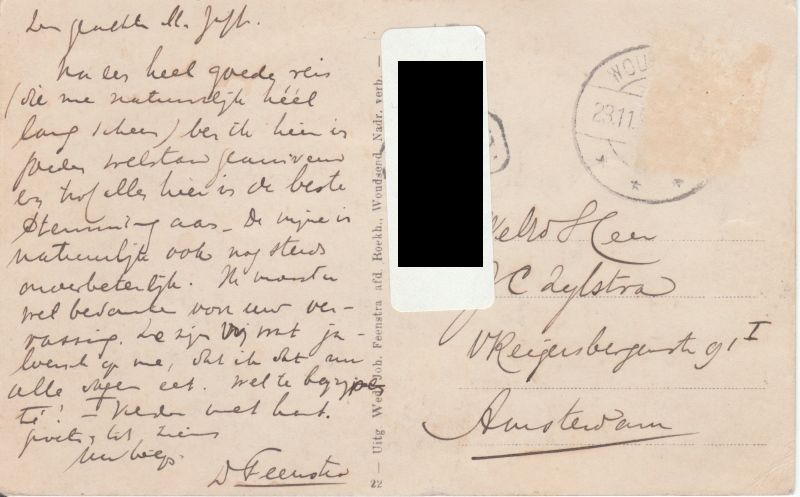 Zeer geachte Mr. Zijlstr.
Na een heel goede reis
(die me natuurlijk héél
lang scheen) ben ik hier in
goeden welstand gearriveerd
en trof alles hier in de beste
stemming aan. De mijne is
natuurlijk ook nog steeds
onverbeterlijk. Ik moest u
wel bedanken voor uw ver-
rassing. Ze zijn
op me, dat ik dat nu
alle dagen eet. Wel te begrijpen
hè! Verder met hart.
groeten, tot ziens
Uw
D Feenstra
22 — Uitg Wed. Joh. Feenstra afd. Boekh., Woudsend. Nadr. verb. —
WOU
23.11
WelEd Heer
J C Zylstra
V Reigersbergenstr 91 I
Amsterdam